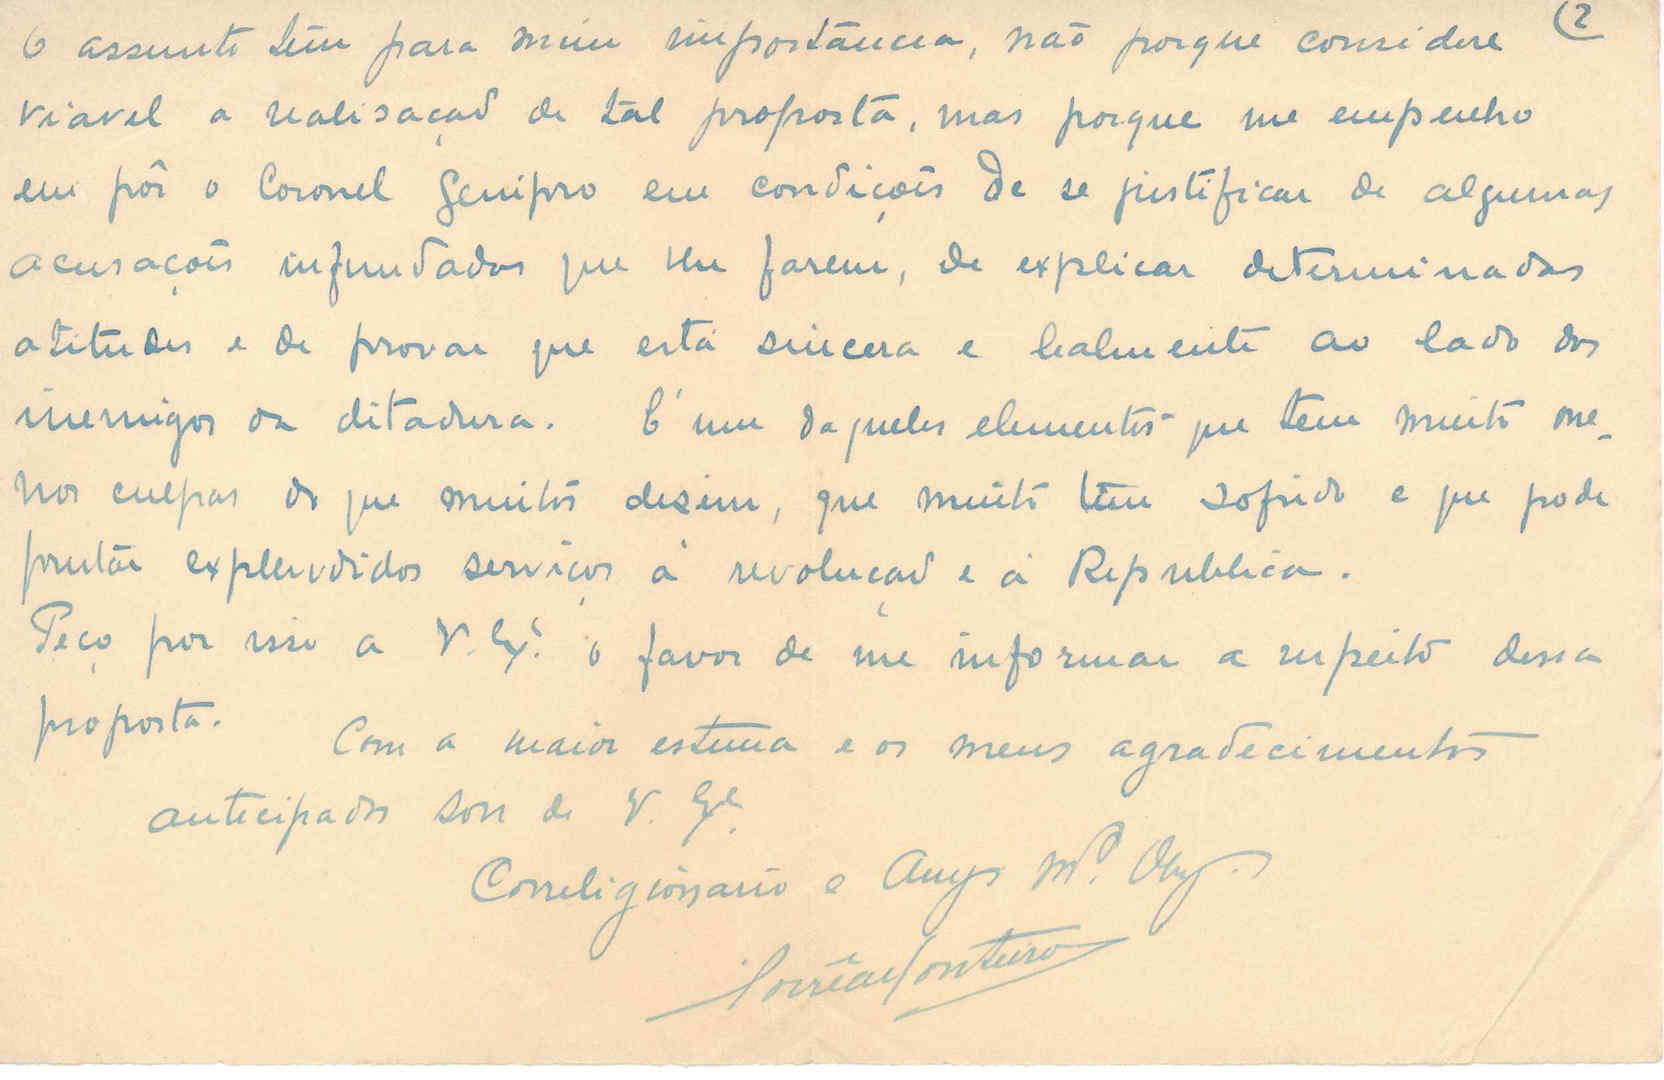 (2
O assunto têm para mim importância, não porque considere
viavel a realisação de tal proposta, mas porque me empenho
em pôr o Coronel Genipro em condições de se justificar de algumas
acusações infundadas que lhe fazem, de explicar determinadas
atitudes e de provar que está sincera e lealmente ao lado dos
inemigos da ditadura. E' um daqueles elementos que tem muito me-
nos culpas do que muitos dizem, que muito têm sofrido e que pode
prestar explendidos serviços á revolução e á Republica.
Peço por isso a V. Ex.ª o favor de me informar a respeito dessa
proposta.
Com a maior estima e os meus agradecimentos
antecipados sou de V. Ex.ª
Correligionario e Amgo M.to Obg.
Corrêa Monteiro